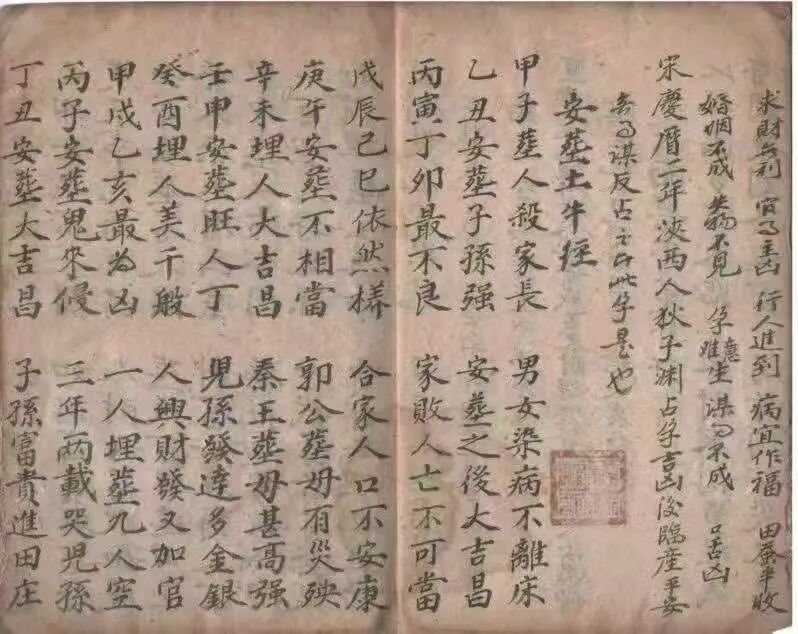 求財无利 官司主凶 行人進到 病宜作福 田蚕半收
婚姻不成 失物不見 孕難生 謀事不成 口舌凶
宋慶曆二年陝西人狄子渊占孕吉凶後臨産平安
安塟土牛經
甲子塟人殺家長 男女染病不離床
乙丑安塟子孫强 安塟之後大吉昌
丙寅丁卯最不良 家敗人亡不可當
戊辰己巳依然樣 合家人口不安康
庚午安塟不相當 郭公塟母有災殃
辛未埋人大吉昌 秦王塟母甚高强
壬申安塟旺人丁 兒孫發達多金銀
癸酉埋人美千般 人興財發又加官
甲戌乙亥最為凶 一人埋塟九人空
丙子安塟鬼來侵 三年两載哭兒孫
丁丑安塟大吉昌 子孫富貴進田庄